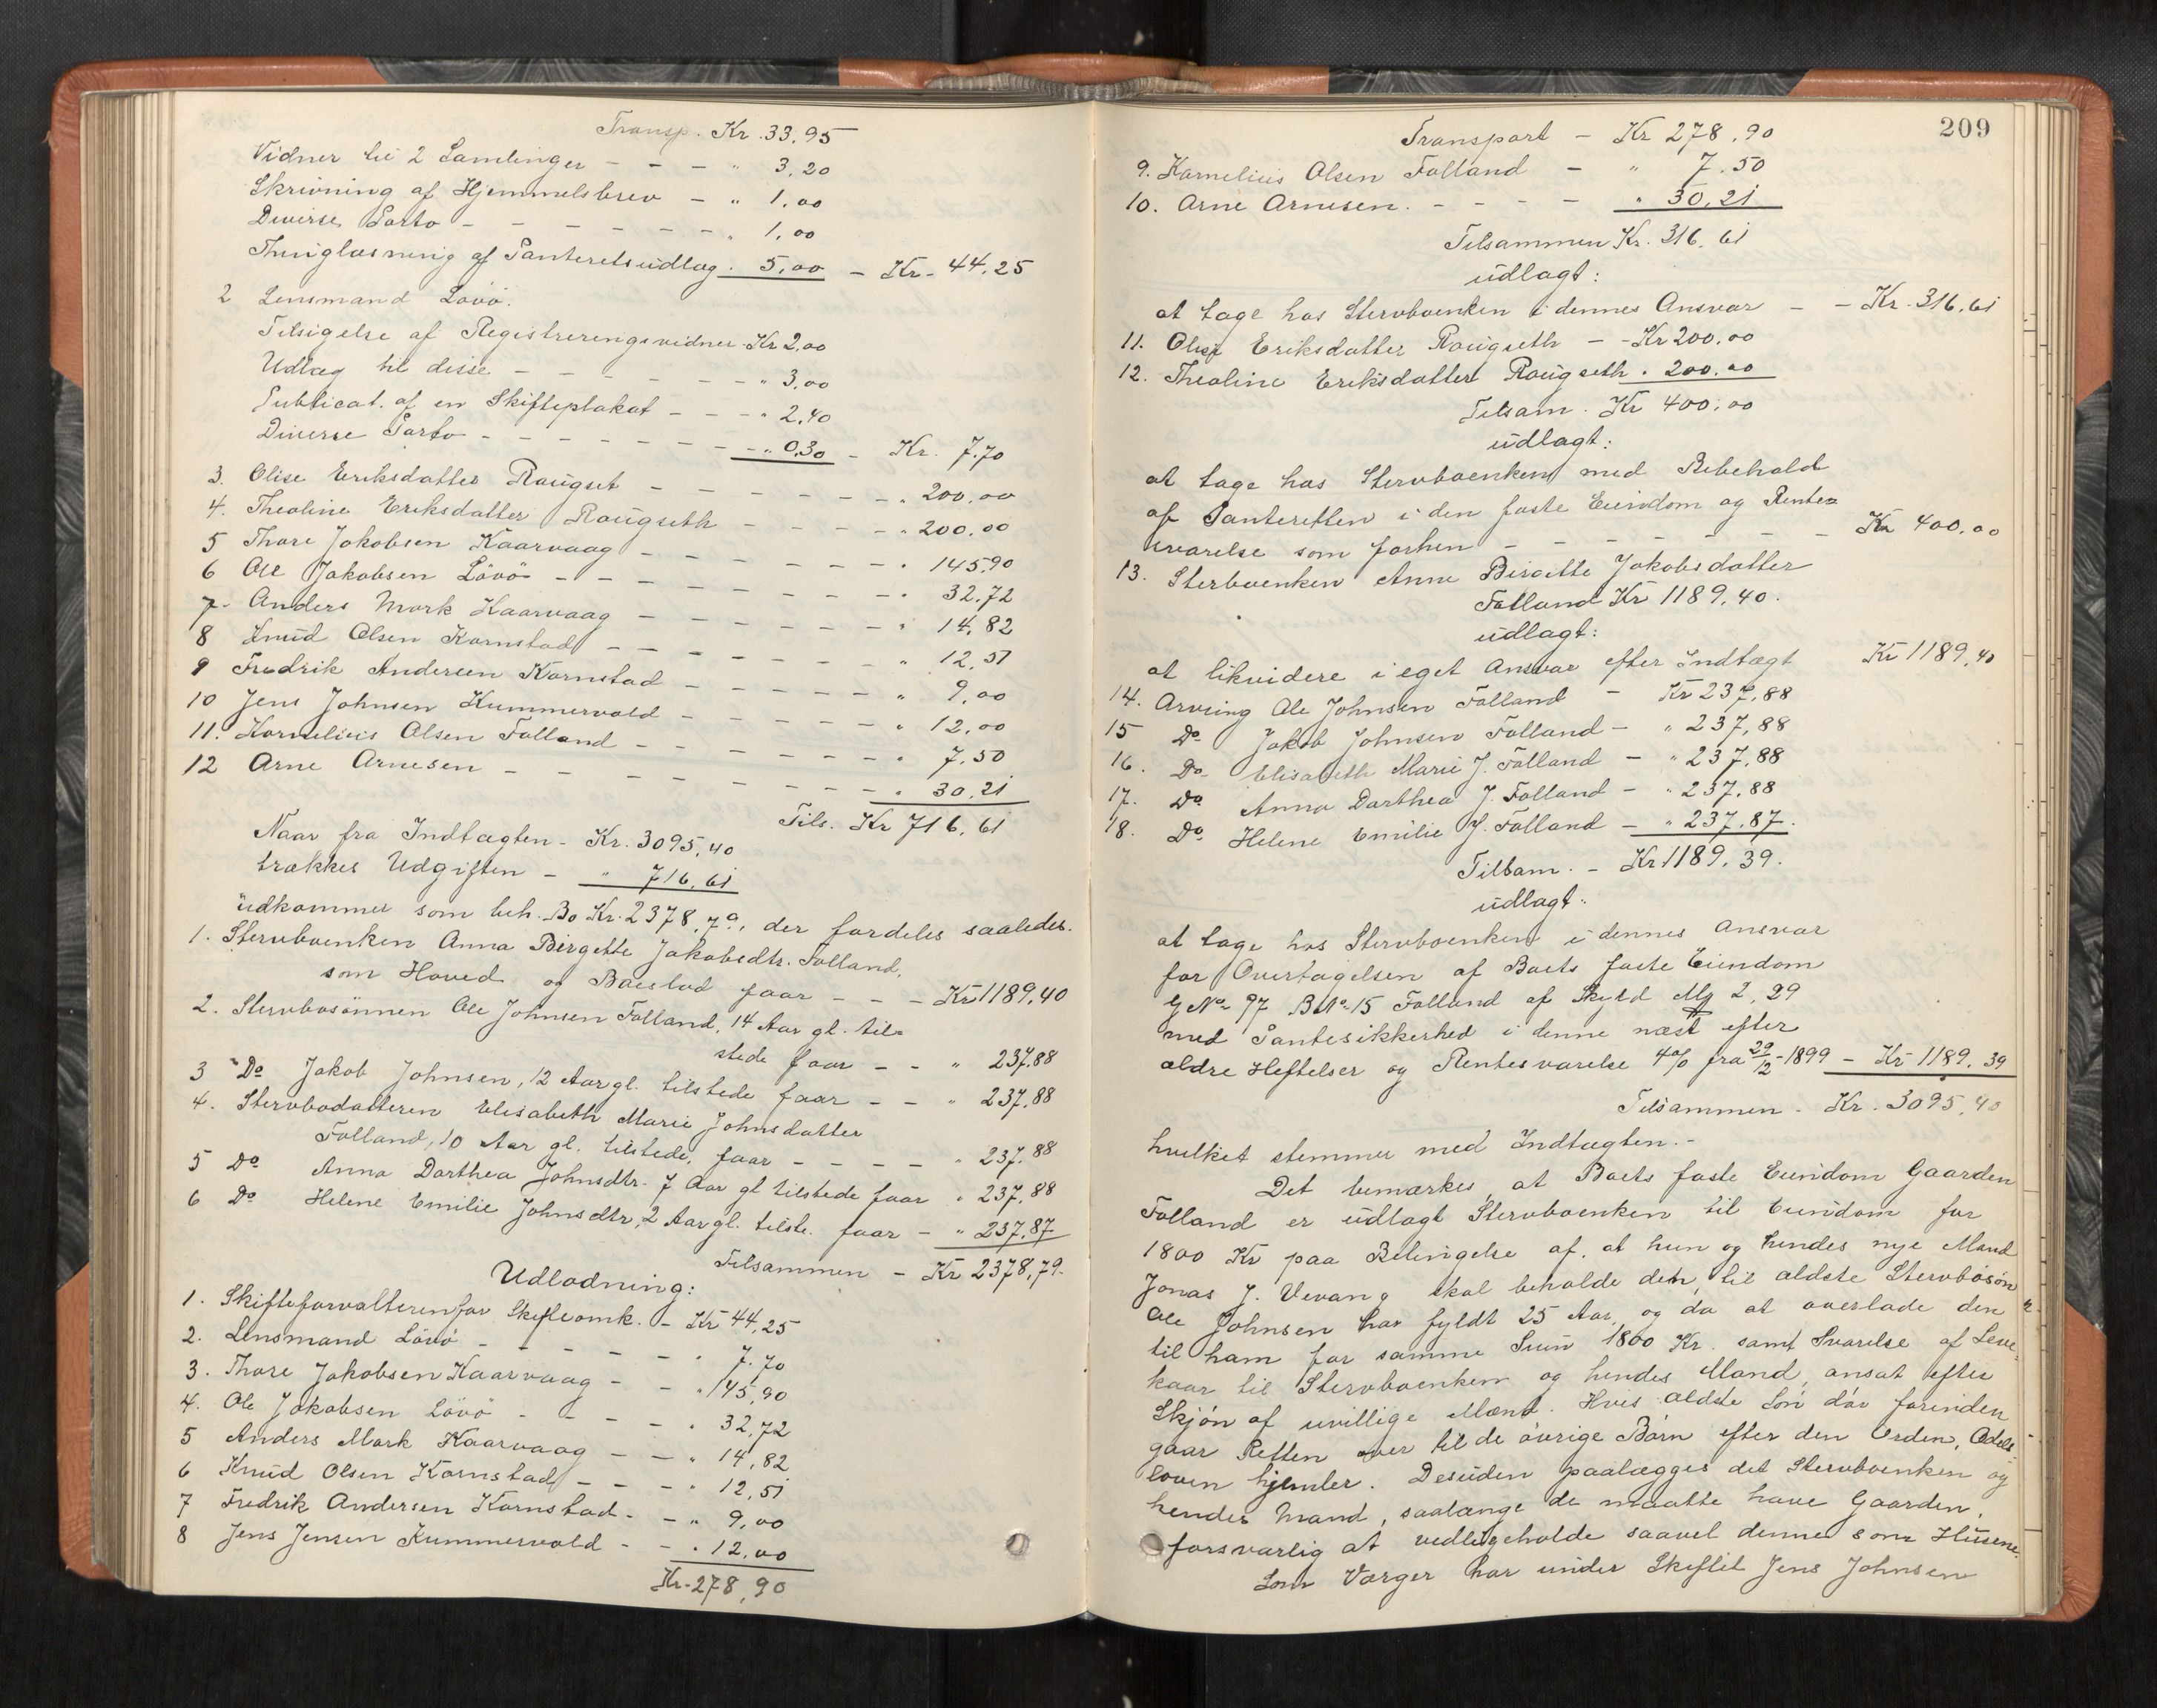 Transp. Kr. 33,95
Vidner til 2 Samlinger - - - " 3,20
Skrivning af Hjemmelsbrev - " 1,00
Diverse Porto - - - - - - " 1,00
Thinglæsning af Panteretsudlæg . 5,00 - Kr - 44,25
2 Lensmand Lövö.
Tilsigelse af Registreringsvidner Kr 2,00
Udlæg til disse - - - - - - " 3,00
Publicat. af en Skifteplakat - - - " 2,40
Diverse Porto - - - - - - - " 0,30 - Kr. 7,70
3. Olise Eriksdatter Raugset - - - - - - " 200,00
4. Theoline Eriksdatter Raugseth - - - - - " 200,00
5 Thore Jakobsen Kaarvaag - - - - - - " 145,90
6 Ole Jakobsen Lövö - - - - - - - " 32,72
7. Anders Mork Kaarvaag - - - - - - " 14,82
8 Knud Olsen Kornstad - - - - - - " 12,51
9 Fredrik Andersen Kornstad - - - - - " 9,00
10 Jens Johnsen Kummervold - - - - - " 12,00
11. Kornelius Olsen Folland - - - - - - " 7,50
12 Arne Arnesen - - - - - - - - " 30,21
Tils. Kr 716,61
Naar fra Indtægten - Kr. 3095,40
trækkes Udgiften - " 716,61
udkommer som beh. Bo Kr. 2378,79, der fordeles saaledes.
1. Stervboenken Anna Birgette Jakobsdtr. Folland,
som Hoved og Boeslod faar - - - Kr 1189,40
2. Stervbosönnen Ole Johnsen Folland, 14 Aar gl. til=
stede faar - - " 237,88
3 Do Jakob Johnsen, 12 Aar gl. tilstede faar - - " 237,88
4. Stervbodatteren Elisabeth Marie Johnsdatter
Folland, 10 Aar gl. tilstede, faar - - - - " 237,88
5 Do Anna Dorthea Johnsdtr. 7 Aar gl tilstede faar " 237,88
6 Do Helene Emilie Johnsdtr, 2 Aar gl. tilste. faar - " 237,87
Tilsammen - Kr 2378,79.
Udlodning:
1. Skifteforvalteren for Skifteomk. - Kr 44,25
2. Lensmand Lövö - - - - - " 7,70
3. Thore Jakobsen Kaarvaag - - " 145,90
4. Ole Jakobsen Lövö - - - - " 32,72
5 Anders Mork Kaarvaag - - " 14,82
6 Knud Olsen Kornstad - - - " 12,51
7 Fredrik Andersen Kornstad - - " 9,00
8 Jens Jensen Kummervold - - " 12,00
Kr. 278,90
209
Transport - Kr 278,90
9. Kornelius Olsen Folland - " 7,50
10. Arne Arnesen. - - - - " 30,21
Tilsammen Kr. 316,61
udlagt:
at tage hos Stervboenken i dennes Ansvar - - Kr. 316,61
11. Olise Eriksdatter Raugseth - - Kr 200,00
12. Theoline Eriksdatter Raugseth . 200,00
Tilsam. Kr 400,00
udlagt:
at tage hos Stervboenken med Bibehold
af Panteretten i den faste Eiendom og Rente=
svarelse som forhen - - - - - - - Kr 400,00
13. Sterboenken Anne Birgitte Jakobsdatter
Folland Kr 1189,40.
udlagt:
at likvidere i eget Ansvar efter Indtægt Kr 1189,40
14. Arving Ole Johnsen Folland - Kr 237,88
15 Do Jakob Johnsen Folland - " 237,88
16. Do Elisabeth Marie J. Folland - " 237,88
17. Do Anna Dorthea J. Folland - " 237,88
18. Do Helene Emilie J. Folland - " 237,87.
Tilsam. - Kr 1189,39.
udlagt:
at tage hos Stervboenken i dennes Ansvar
for Overtagelsen af Boets faste Eiendom
G No 97 B No 15 Folland af Skyld Mk 2,29
med Pantesikkerhed i denne næst efter
ældre Heftelser og Rentesvarelse 4% fra 29/12 - 1899 - Kr 1189,39
Tilsammen - Kr. 3095,40
hvilket stemmer med Indtægten. -
Det bemærkes, at Boets faste Eiendom Gaarden
Folland er udlagt Stervboenken til Eiendom for
1800 Kr paa Betingelse af, at hun og hendes nye Mand
Jonas J. Vevang skal beholde den, til ældste Stervbosön
Ole Johnsen har fyldt 25 Aar, og da at overlade den
til ham for samme Sum 1800 Kr. samt Svarelse af Leve=
kaar til Stervboenken og hendes Mand, ansat efter
Skjön af uvillige Mænd. Hvis ældste Sön dör forinden
gaar Retten over til de övrige Börn efter den Orden, Odels=
loven hjemler. Desuden paalægges det Stervboenken og
hendes Mand, saalænge de maatte have Gaarden,
forsvarlig at vedligeholde saavel denne som Husene.
Som Værger har under Skiftet Jens Johnsen